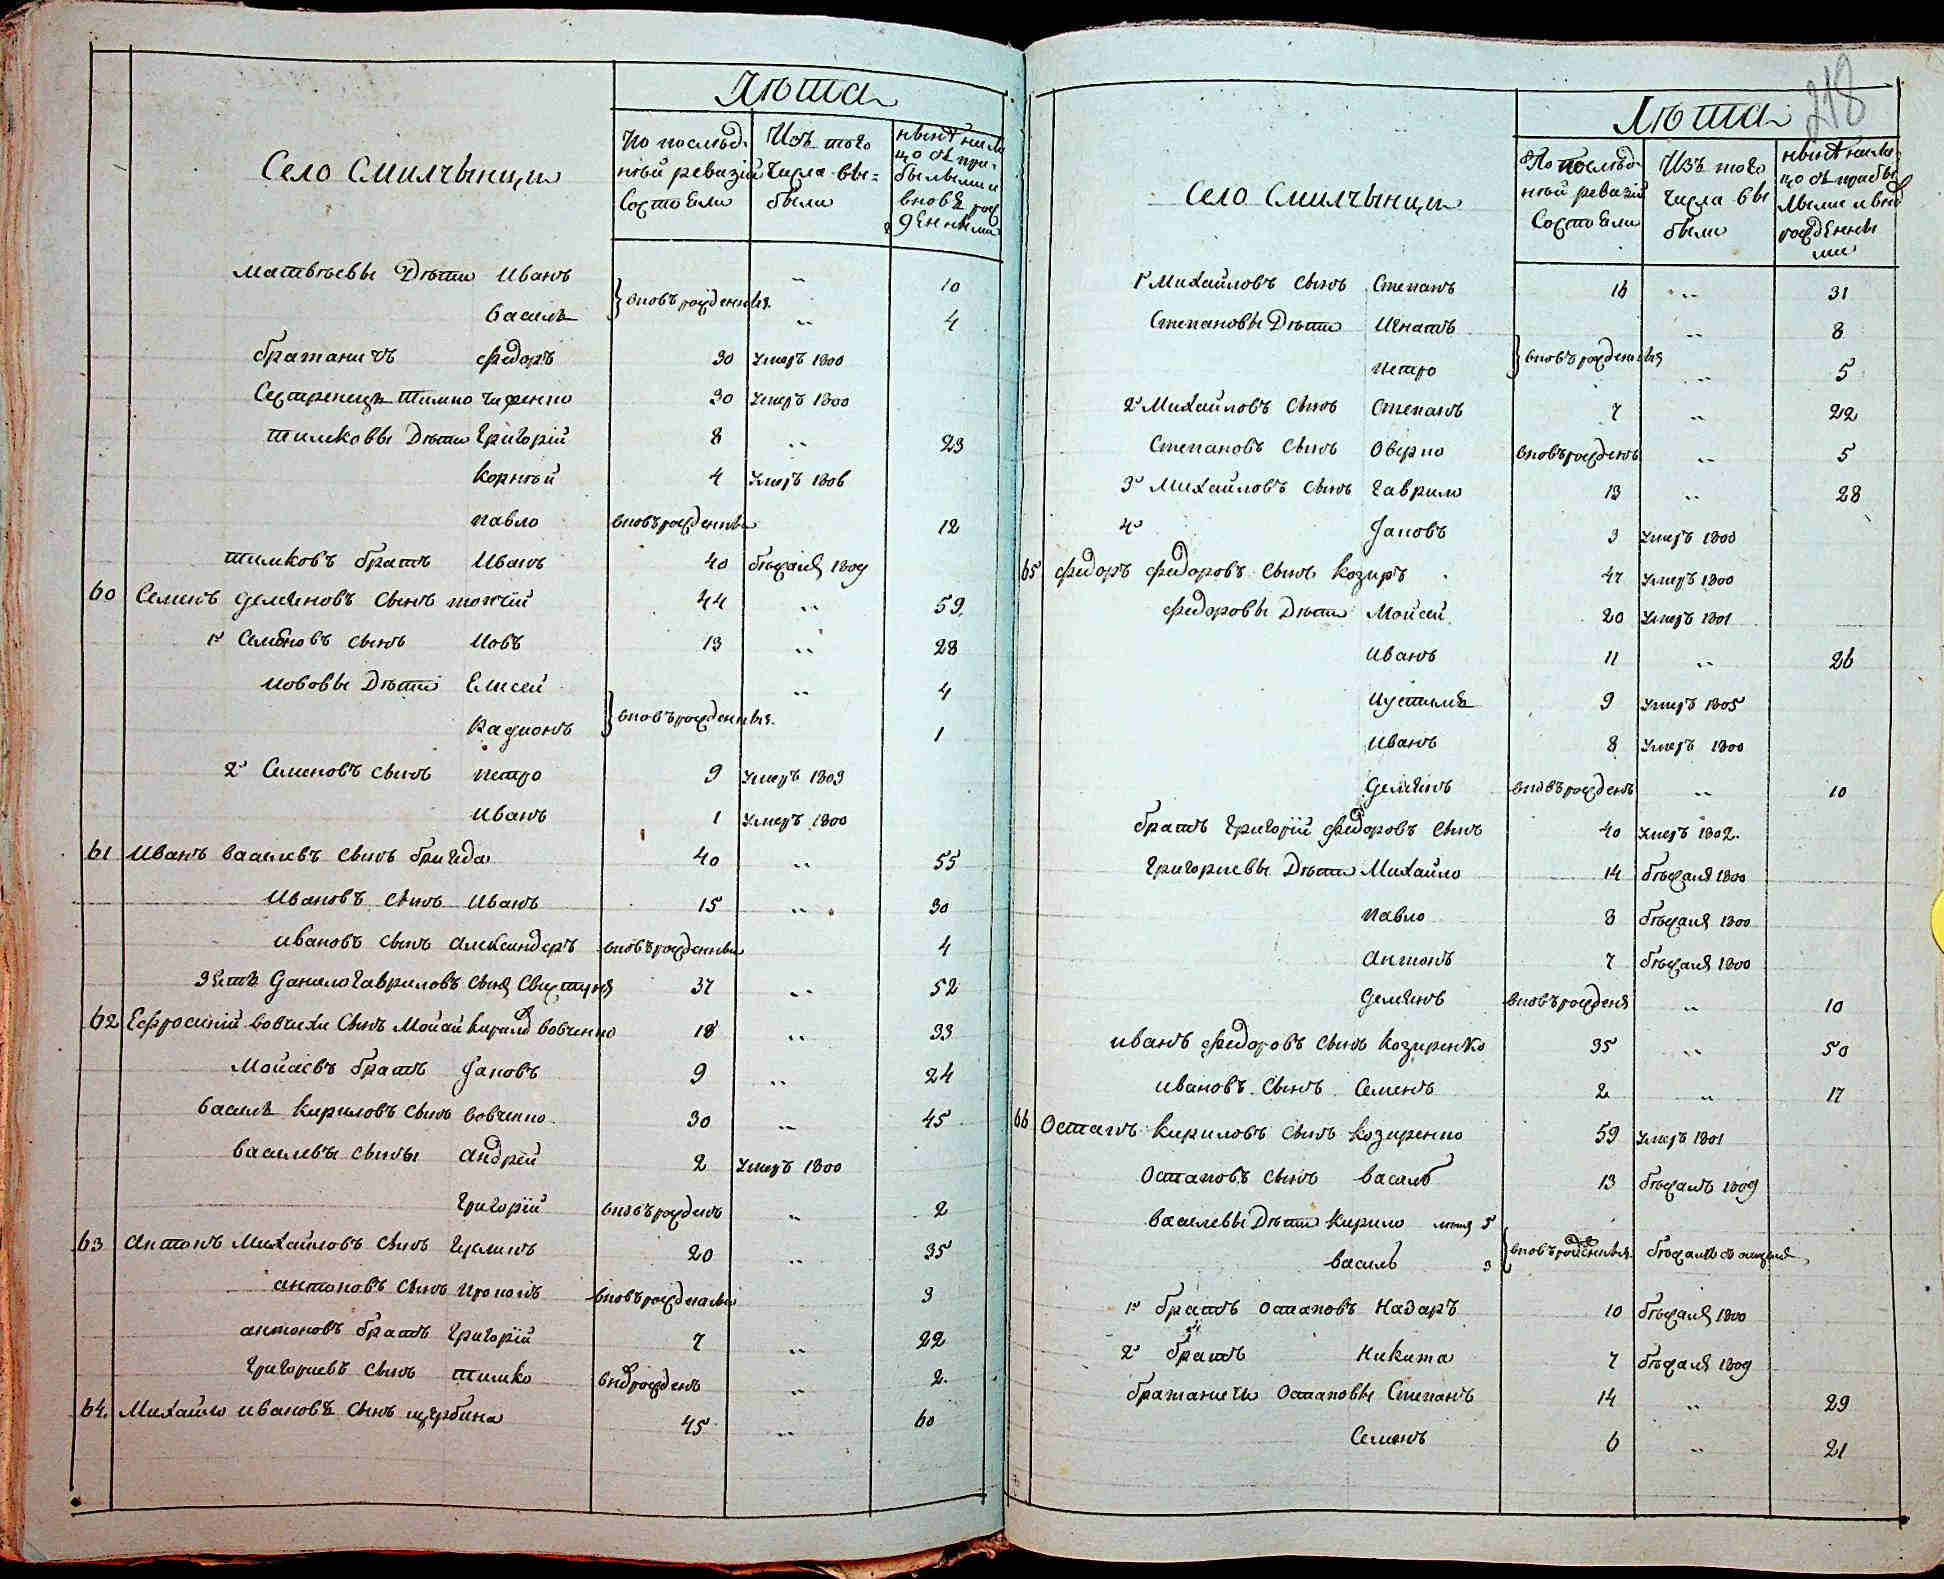 Лѣта
Село Смилчынци
По послѣд-
ной ревизіи
Состояли
Изъ того
числа вы=
были
нынѣ нали
цо съ при-
былыми и
вновь рож
денными
Матвѣевы Дѣти Иванъ .. 10
Василь вновь рожденныя .. 4
братаничъ Федоръ 30 умеръ 1800
Сестренецъ Тимко 30 умеръ 1800
Тимковы Дѣти Григорій 8 .. 23
Корнѣй 4 умеръ 1806
Павло вновьрожденны 12
Тимковъ братъ Иванъ 40 бѣжалъ 1809
60 Семенъ Демяновъ Сынъ 44 .. 59
1й Семеновъ Сынъ Иовъ 13 .. 28
Иововы Дѣти Елисей .. 4
Радионъ вновьрожденныя. 1
2й Семеновъ Сынъ Петро 9 умеръ 1803
Иванъ 1 умеръ 1800
61 Иванъ Василевъ Сынъ Бригида 40 .. 55
Ивановъ Сынъ Иванъ 15 .. 30
Ивановъ Сынъ Александеръ вновьрожденны 4
Зять Данило Гавриловъ Сынъ 37 .. 52
62 Ефросиніи Вовчихи Сынъ Мойсей Вовченко 18 .. 33
Мойсѣевъ братъ Яковъ 9 .. 24
Василь Кириловъ Сынъ Вовченко 30 .. 45
Василевы Сыны Андрей 2 умеръ 1800
Григорій вновьрожденъ .. 2
63 Антонъ Михайловъ Сынъ 20 .. 35
Антоновъ Сынъ Прокопъ вновьрожденны 3
Антоновъ братъ Григорій 7 .. 22
Григориевъ Сынъ Тимко .. 2
64. Михайло Ивановъ Сынъ Щербина 45 .. 60
218
Лѣта
Село Смилчынци
По послѣд-
ной ревизіи
Состояли
Изъ того
числа вы
были
нынѣ нали-
цо съ прибы
лыми и вно
рожденны
ми
1й Михайловъ Сынъ Степанъ 16 .. 31
Степановы Дѣти Игнатъ .. 8
Петро вновьрожденныя .. 5
2й Михайловъ Сынъ Степанъ 7 .. 22
Степановъ Сынъ Оверко вновьрожденъ .. 5
3й Михайловъ Сынъ Гаврило 13 .. 28
4й Яковъ 3 умеръ 1800
65 Федоръ Федоровъ Сынъ Козиръ 47 умеръ 1800
Федоровы Дѣти Мойсей 20 умеръ 1801
Иванъ 11 .. 26
Иустимъ 9 умеръ 1805
Иванъ 8 умеръ 1800
Демянъ вновьрожденъ .. 10
братъ Григорій Федоровъ Сынъ 40 умеръ 1802.
Григориевы Дѣти Михайло 14 бѣжалъ 1800
Павло 8 бѣжалъ 1800
Антонъ 7 бѣжалъ 1800
Демянъ вновьрожденъ .. 10
Иванъ Федоровъ Сынъ Козиренко 35 .. 50
Ивановъ Сынъ Семенъ 2 .. 17
66 Остапъ Кириловъ Сынъ Козиренко 59 умеръ 1801
Остаповъ Сынъ Василь 13 бѣжалъ 1809
Василевы Дѣти Кирило 5
Василь 3 вновьрожденныя бѣжали съ отцемъ
1й братъ Остаповъ Назаръ 10 бѣжалъ 1800
2й братъ Никита 7 бѣжалъ 1809
братаничи Остаповы Степанъ 14 .. 29
Семенъ 6 .. 21